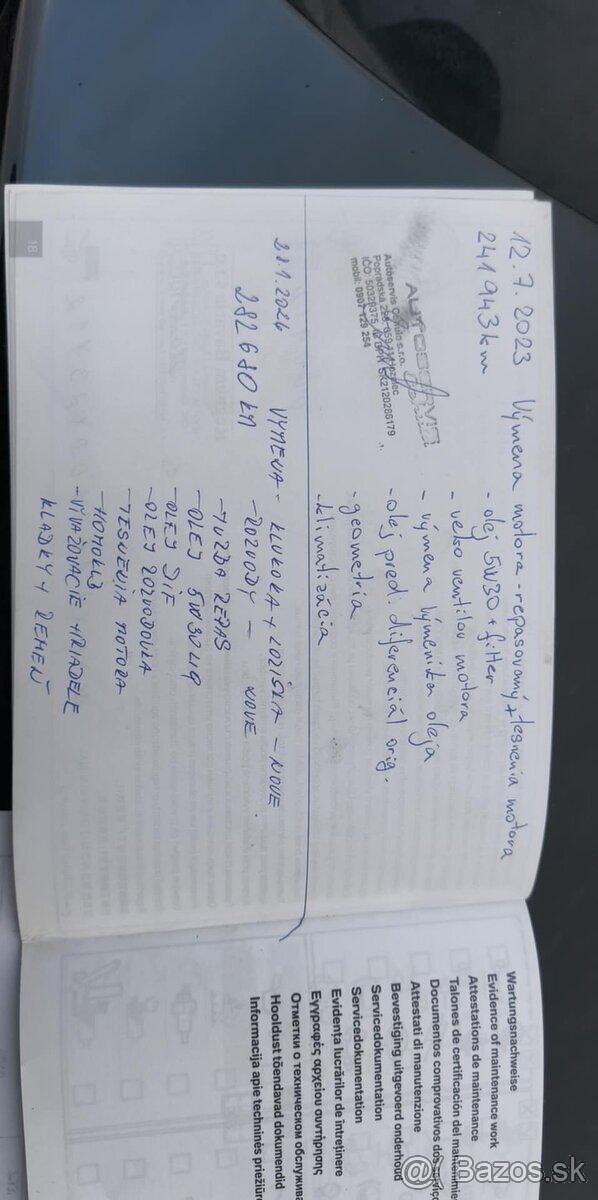 12.7.2023 Výmena motora - repasovaný + tesnenia motora
241 943 km - olej 5W30 + filter
- veko ventilov motora
- výmena výmeníka oleja
- olej pred. diferenciál orig.
- geometria
- klimatizácia
AUTOSERVIS
Autoservis s.r.o.
Popradská 059
IČO: 50328375 SK2120286179
mobil: 0907 129 254
28.1.2026 VÝMENA - KLUKOKA + LOŽISKA - NOVE
282 680 KM - ROZVODY - NOVE
- TURBA REPAS
- OLEJ 5W30 L19
- OLEJ DIF
- OLEJ ROZVODOVKA
- TESNENIA MOTORA
- HOMOKLB
- VIVAŽOVACIE HRIADELE
KLADKY + REMEŇ
18
Wartungsnachweise
Evidence of maintenance work
Attestations de maintenance
Talones de certificación del mantenimie
Documentos comprovativos dos serviço
Attestati di manutenzione
Bevestiging uitgevoerd onderhoud
Servicedokumentation
Servicedokumentation
Evidența lucrărilor de întreținere
Εγγραφές αρχείου συντήρησης
Отметки о техническом обслужива
Hooldust tõendavad dokumendid
Informacija apie techninės priežiūr
Bazos.sk